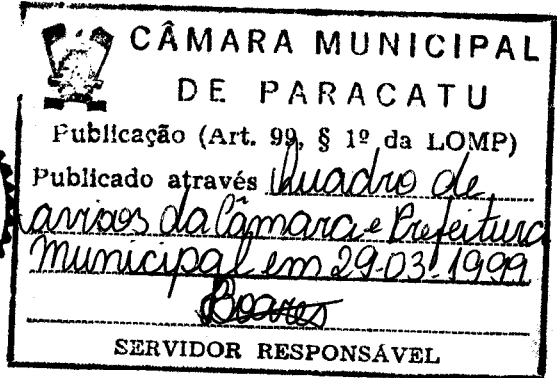 CÂMARA MUNICIPAL
DE PARACATU
Publicação (Art. 99, § 1º da LOMP)
Publicado através Quadro de
avisos da Câmara e Prefeitura
Municipal em 29-03-1999
SERVIDOR RESPONSÁVEL